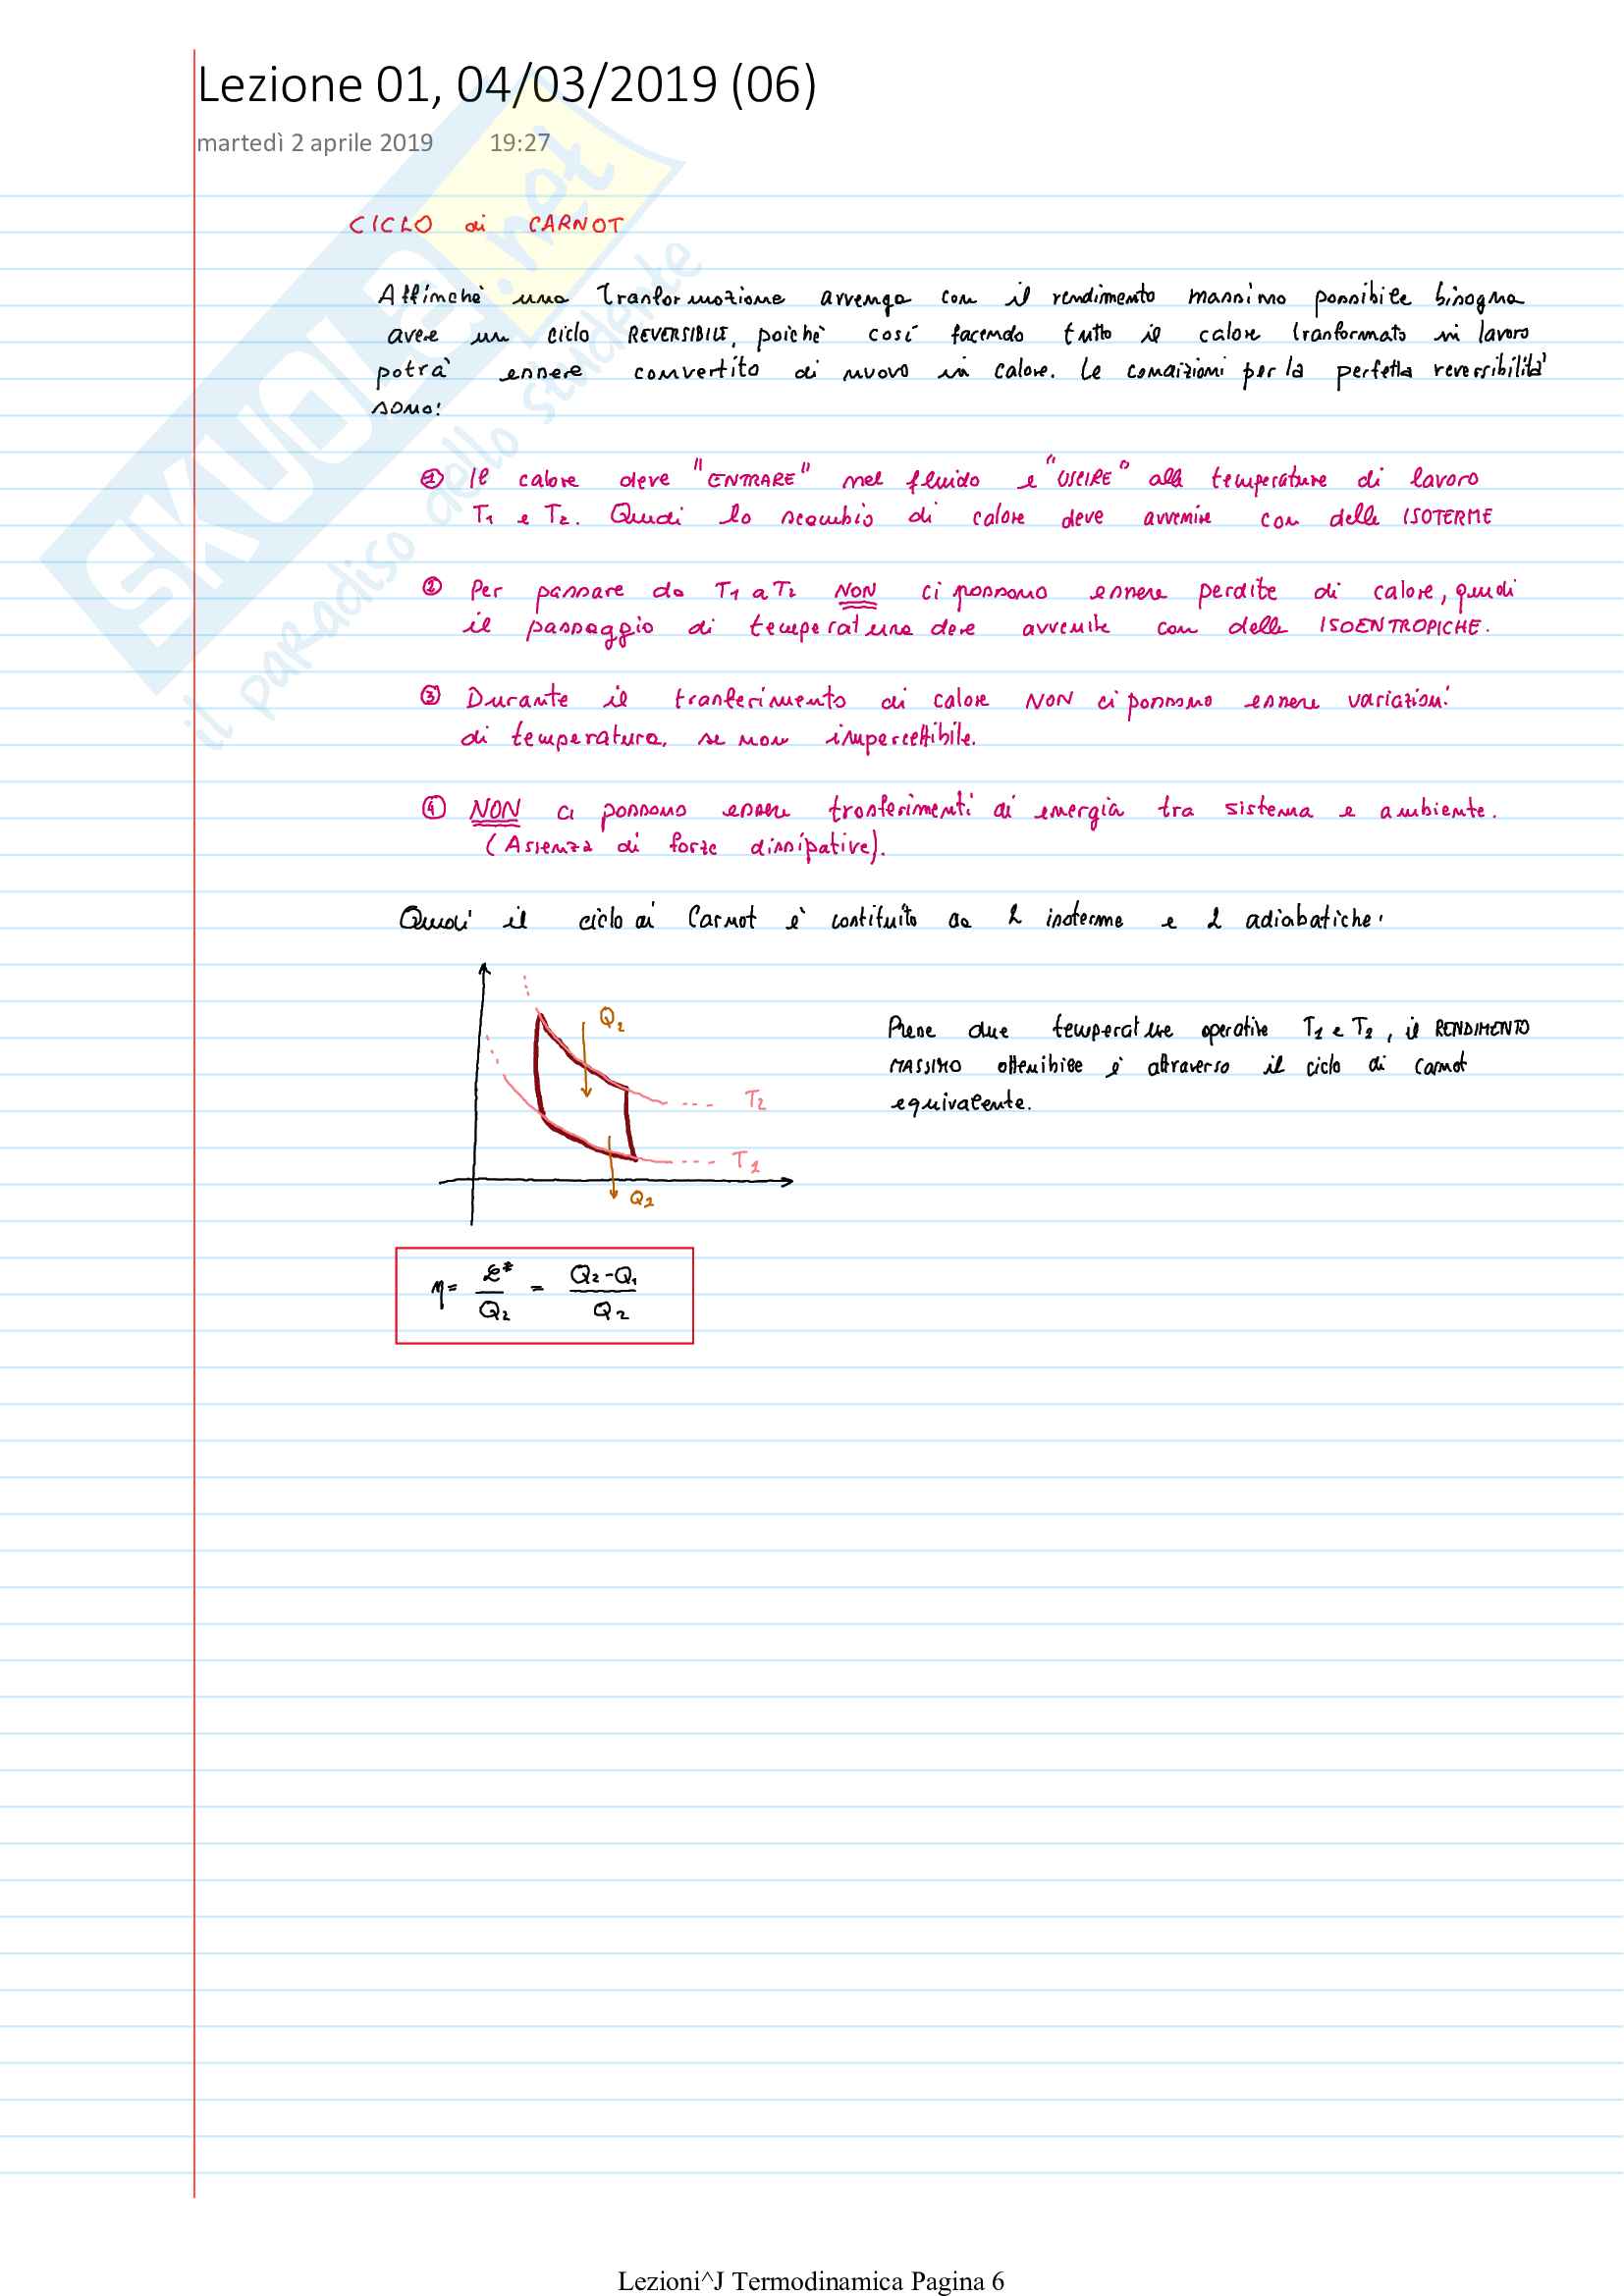 Lezione 01, 04/03/2019 (06)
martedì 2 aprile 2019 19:27
CICLO di CARNOT
Affinchè una Trasformazione avvenga con il rendimento massimo possibile bisogna
avere un ciclo REVERSIBILE, poichè così facendo tutto il calore trasformato in lavoro
potrà essere convertito di nuovo in calore. Le condizioni per la perfetta reversibilità
sono:
① Il calore deve "ENTRARE" nel fluido e "USCIRE" alle temperature di lavoro
T1 e T2. Quindi lo scambio di calore deve avvenire con delle ISOTERME
② Per passare da T1 a T2 NON ci possono essere perdite di calore, quindi
il passaggio di temperatura deve avvenire con delle ISOENTROPICHE.
③ Durante il trasferimento di calore NON ci possono essere variazioni
di temperatura, se non impercettibile.
④ NON ci possono essere trasferimenti di energia tra sistema e ambiente.
(Assenza di forze dissipative).
Quindi il ciclo di Carnot è costituito da 2 isoterme e 2 adiabatiche:
Q2
T2
T1
Q2
Prese due temperature operative T1 e T2, il RENDIMENTO
MASSIMO ottenibile è attraverso il ciclo di Carnot
equivalente.
η = ℒ* / Q2 = Q2-Q1 / Q2
SKUOLA.net
il paradiso dello studente
Lezioni^J Termodinamica Pagina 6